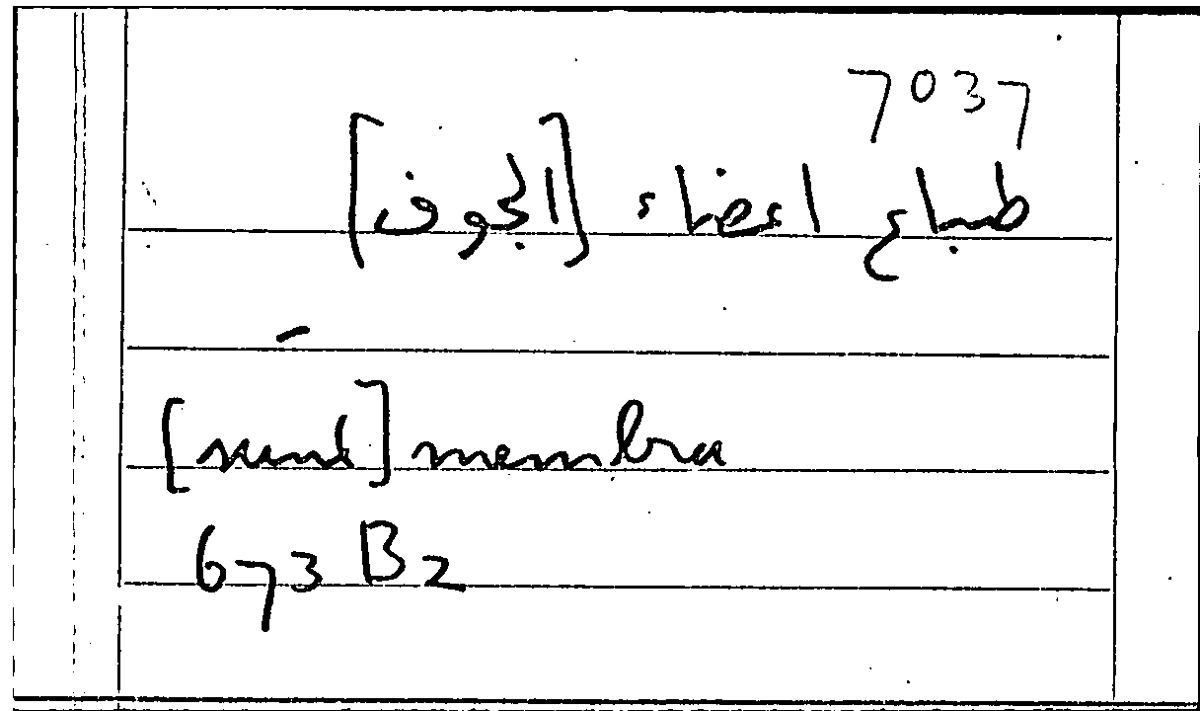 7037
طباع اعضاء [الجوف]
[sunt] membra
673 B2